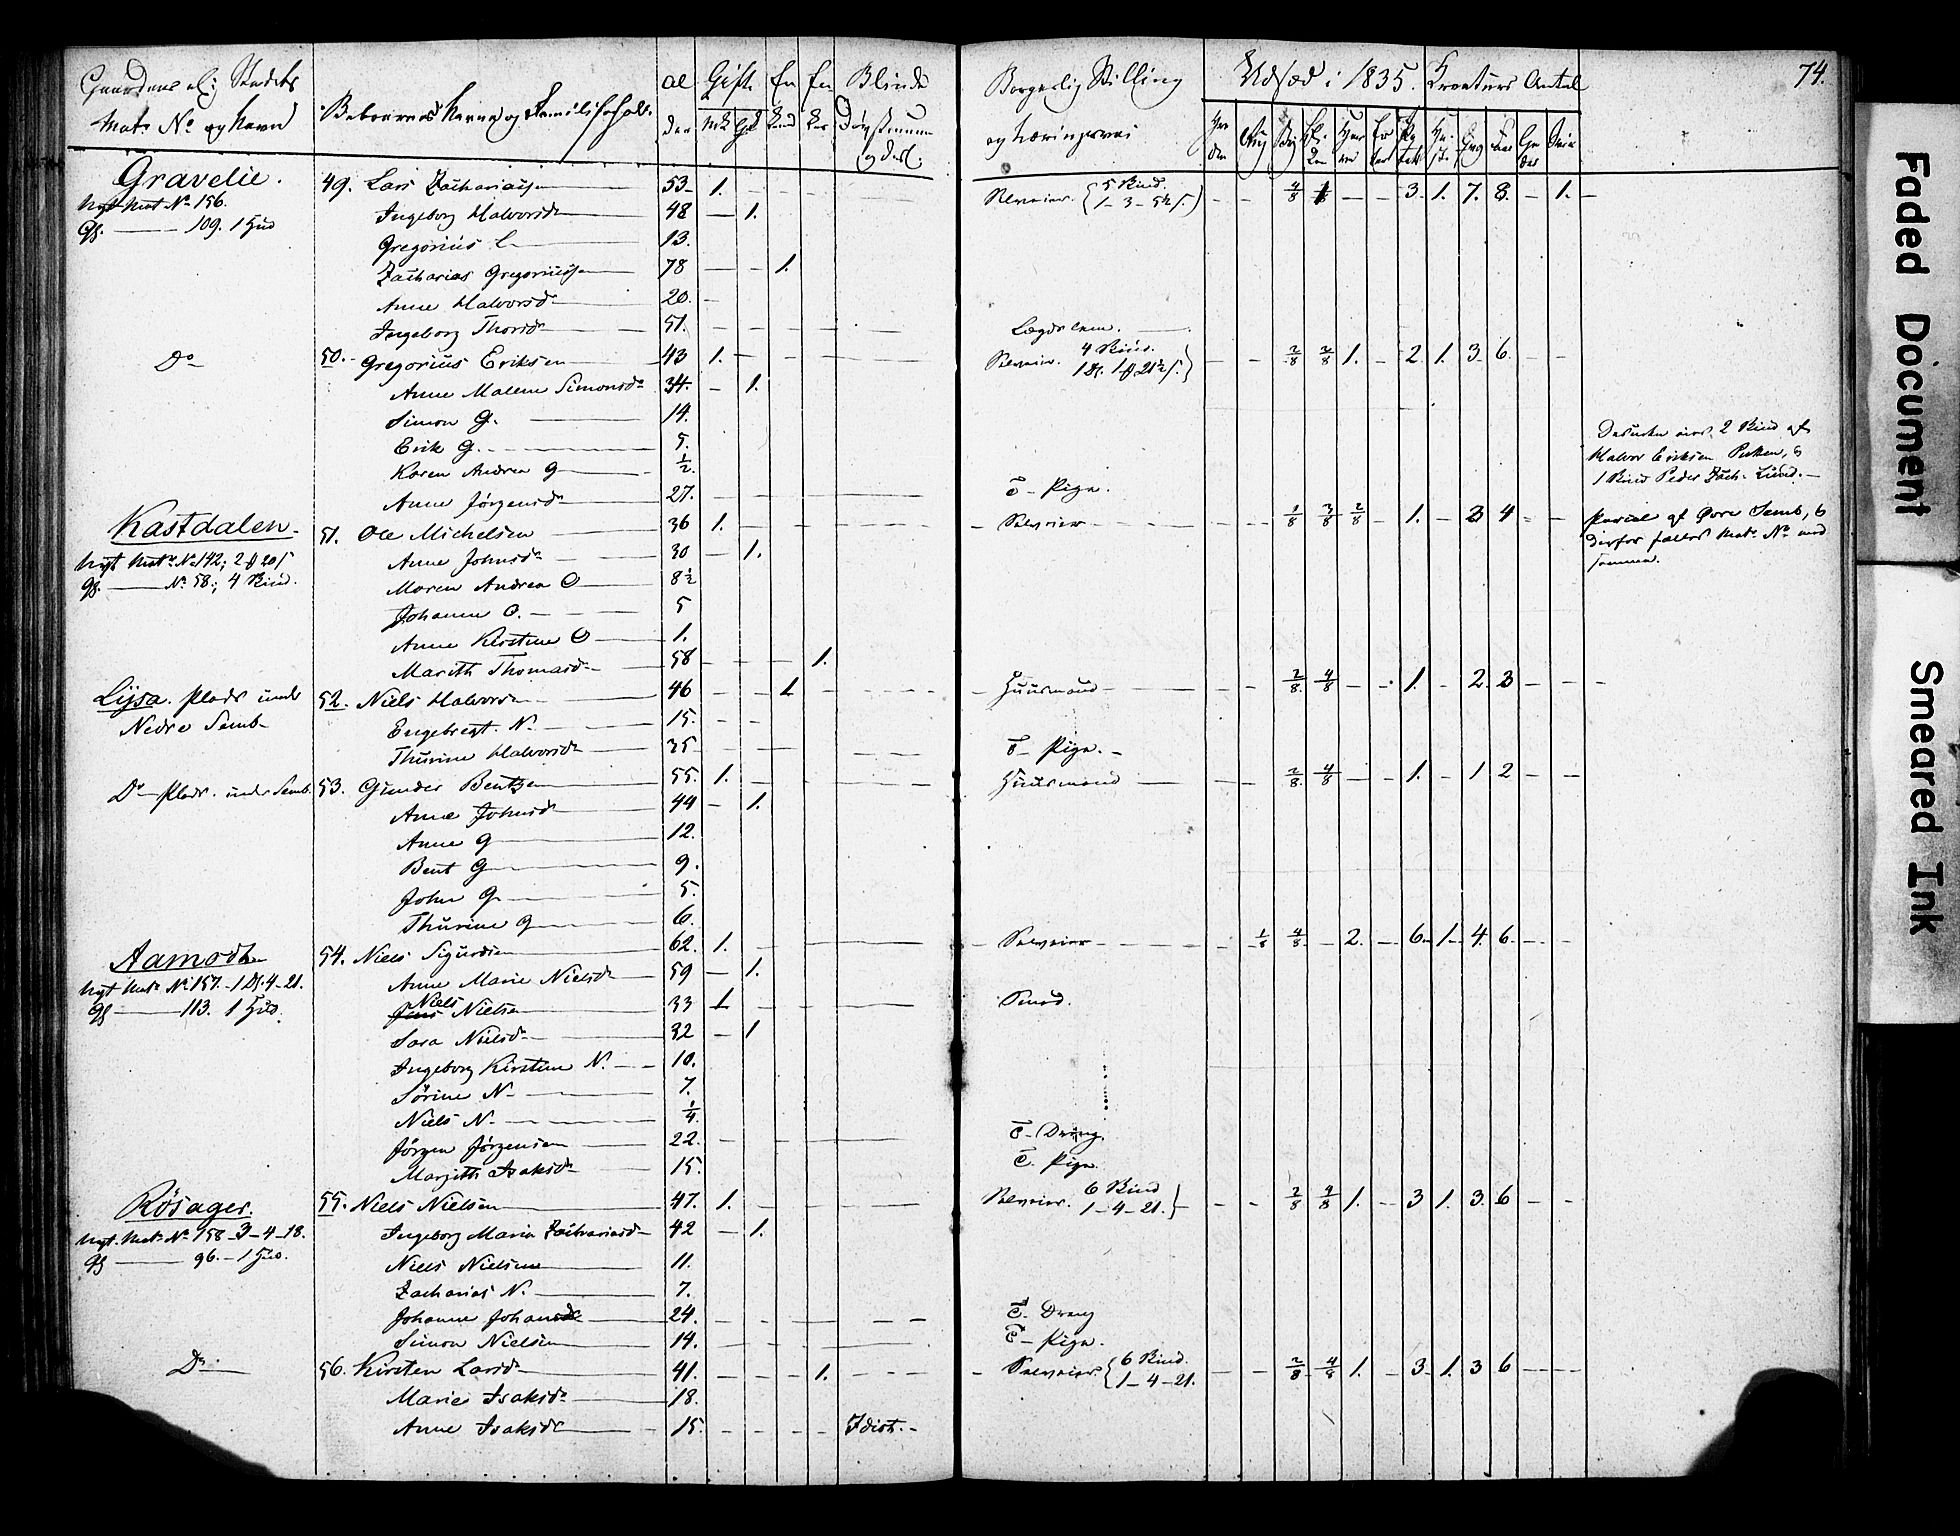 74.
Gaardens el. Stedets Matr No og Navn | Beboernes Navne og Familieforhold. | Al der | Gift. Mk Qd | En kmd | En ke | Blinde Døvstumme og desl. | Borgerlig Stilling og Næringsvei | Udsæd i 1835. | Kreaturs Antal
Gravelie. 49. Lars Zachariass 53 1. Selveier. 5 Skind. 1-3-5½ s. 4/8 1 3. 1. 7. 8. 1.
Nyt Mat No 156. Ingeborg Halvorsd 48 1.
Gl. 109. 1 Hud Gregorius L 13.
Zacharias Gregoriussen 78 1.
Anne Halvorsd 20.
Ingeborg Thorsd 51. Lægdslem.
Do 50. Gregorius Eriksen 43 1. Selveier. 4 Skind. 1 D. 1 21½ s. 2/8 2/8 1. 2. 1. 3. 6.
Anne Malene Simonsd 34. 1.
Simon G. 14.
Erik G. 5.
Karen Andrea G 1/2.
Anne Jørgensd 27. T- Pige.
Desuden eier 2 Skind af
Halvor Eriksen
1 Skind Peder Zach. Lund.
Kastdalen. 51. Ole Michelsen 36 1. Selveier 1/8 3/8 2/8 1. 3 4
Nyt Mat. No 142; 2 20 s Anne Johnsd 30 1.
Gl. No 58; 4 Skind. Maren Andrea O 8½
Johanne O. 5
Anne Kirstine O 1.
Marith Thomasd 58 1.
Parcel af Øvre Semb,
derfor falder Mat. No
sammen.
Lysa. Plads under 52. Niels Halvorsen 46 1 Huusmand 2/8 4/8 1. 2. 3
Nedre Semb Engebregt. N. 15.
Thurine Halvorsd 35 T- Pige.
Do Plads. under Semb. 53. Gunder Bentzen 55. 1. Huusmand 2/8 4/8 1. 1 2
Anne Johnsd 44 1.
Anne G 12.
Bent G 9.
John G 5.
Thurine G 6.
Aamodt 54. Niels Sigurdsen 62. 1. Selveier 1/8 4/8 2. 6 1. 4. 6.
Nyt Mat. No 157. 1 D. 4-21. Anne Marie Nielsd 59 1.
Gl. 113. 1 Hud. Niels Nielsen 33 1
Sara Nielsd 32 1
Ingeborg Kirstine N. 10.
Sørine N 7.
Niels N. 1/4.
Jørgen Jørgensen 22. T- Dreng.
Margith Isaksd 15. T. Pige
Røsager. 55. Niels Nielsen 47. 1. Selveier. 6 Skind 1-4-21. 2/8 4/8 1. 3 1. 3. 6
Nyt. Mat. No 158. 3-4-18. Ingeborg Maria Zachariasd 42 1.
Gl 96. 1 Hud. Niels Nielsen 11.
Zacharias N. 7.
Johanne Johansd 24. T. Dreng
Simon Nielsen 14. T- Pige.
Do 56. Kirsten Larsd 41. 1. Selveier. 6 Skind. 1-4-21. 2/8 4/8 1. 3 1. 3 6
Marie Isaksd 18.
Anne Isaksd 15 Idiot.
Faded Document
Smeared Ink